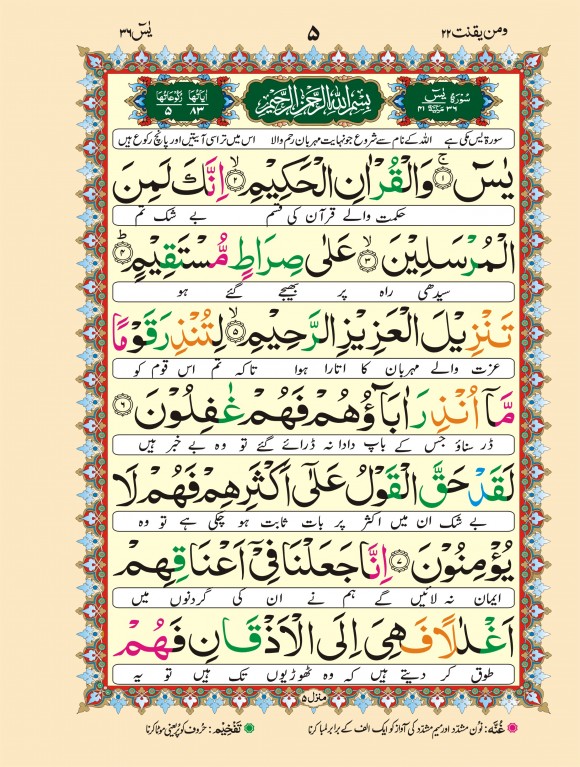 ومن یقنت ۲۲ ۵ یٰسٓ ۳۶
سورۃ یٰسٓ ۳۶ مکیة ۴۱ بِسْمِ اللّٰهِ الرَّحْمٰنِ الرَّحِیْمِ اٰیاتها ۸۳ رکوعاتها ۵
سورۃ یٰسٓ مکی ہے اللہ کے نام سے شروع جو نہایت مہربان رحم والا اس میں تراسی آیتیں اور پانچ رکوع ہیں
یٰسٓ ۝۱ وَالْقُرْاٰنِ الْحَكِیْمِ ۝۲ اِنَّكَ لَمِنَ
حکمت والے قرآن کی قسم بے شک تم
الْمُرْسَلِیْنَ ۝۳ عَلٰی صِرَاطٍ مُّسْتَقِیْمٍ ۝۴
سیدھی راہ پر بھیجے گئے ہو
تَنْزِیْلَ الْعَزِیْزِ الرَّحِیْمِ ۝۵ لِتُنْذِرَ قَوْمًا
عزت والے مہربان کا اتارا ہوا تاکہ تم اس قوم کو
مَّاۤ اُنْذِرَ اٰبَآؤُهُمْ فَهُمْ غٰفِلُوْنَ ۝۶
ڈر سناؤ جس کے باپ دادا نہ ڈرائے گئے تو وہ بے خبر ہیں
لَقَدْ حَقَّ الْقَوْلُ عَلٰۤی اَكْثَرِهِمْ فَهُمْ لَا
بے شک ان میں اکثر پر بات ثابت ہو چکی ہے تو وہ
یُؤْمِنُوْنَ ۝۷ اِنَّا جَعَلْنَا فِیْۤ اَعْنَاقِهِمْ
ایمان نہ لائیں گے ہم نے ان کی گردنوں میں
اَغْلٰلًا فَهِیَ اِلَی الْاَذْقَانِ فَهُمْ
طوق کر دیتے ہیں کہ وہ ٹھوڑیوں تک ہیں تو یہ
منزل ۵
غُنَّہ: نون مشدد اور میم مشدد کی آواز کو ایک الف کے برابر لمبا کرنا تَفْخِیْم: حروف کو پُر یعنی موٹا کرنا